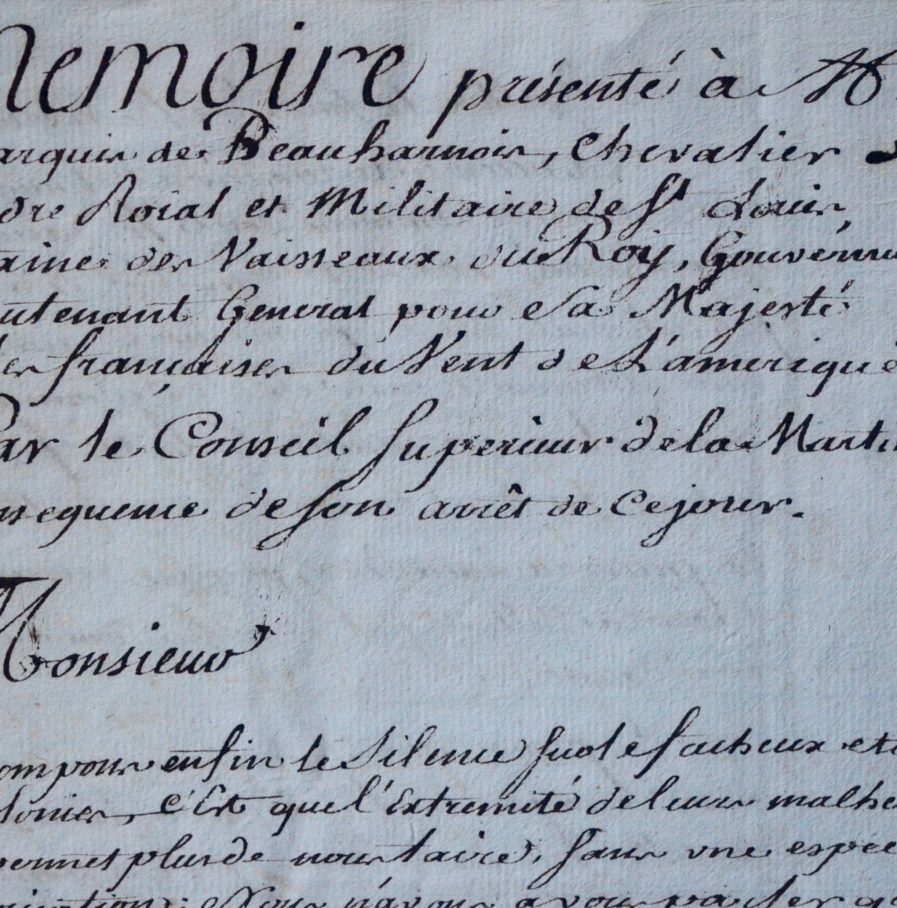 Memoire présenté à M
arquis de Beauharnois, Chevalier
dre Roial et Militaire de St Louis,
aine des Vaisseaux du Roy, Gouverneu
utenant General pour Sa Majesté
les françaises du Vent de L'amerique
Par le Conseil Superieur de la Marti
nsequence de son arrêt de Ce jour.
Monsieur
ompons enfin le Silence sur le facheux et
lonies, c'Est que l'Extremité de leurs malhe
permet plus de nous taire, sans une espéc
nous n'avons a vous parler